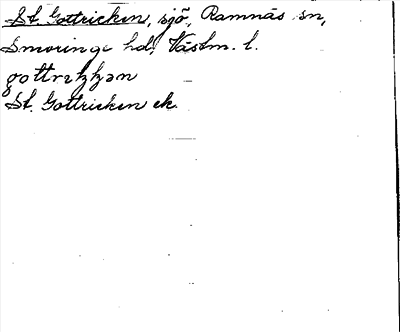 St. Gottricken, sjö, Ramnäs sn,
Snevringe hd, Västm. l.
St. Gottricken ek.